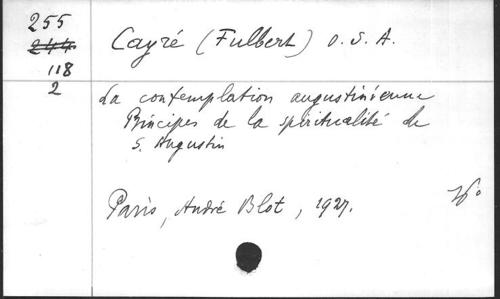 255
244
118
2
Cayré (Fulbert) O.S.A.
La contemplation augustinienne
Principes de la spiritualité de
S. Augustin
Paris, André Blot, 1927.